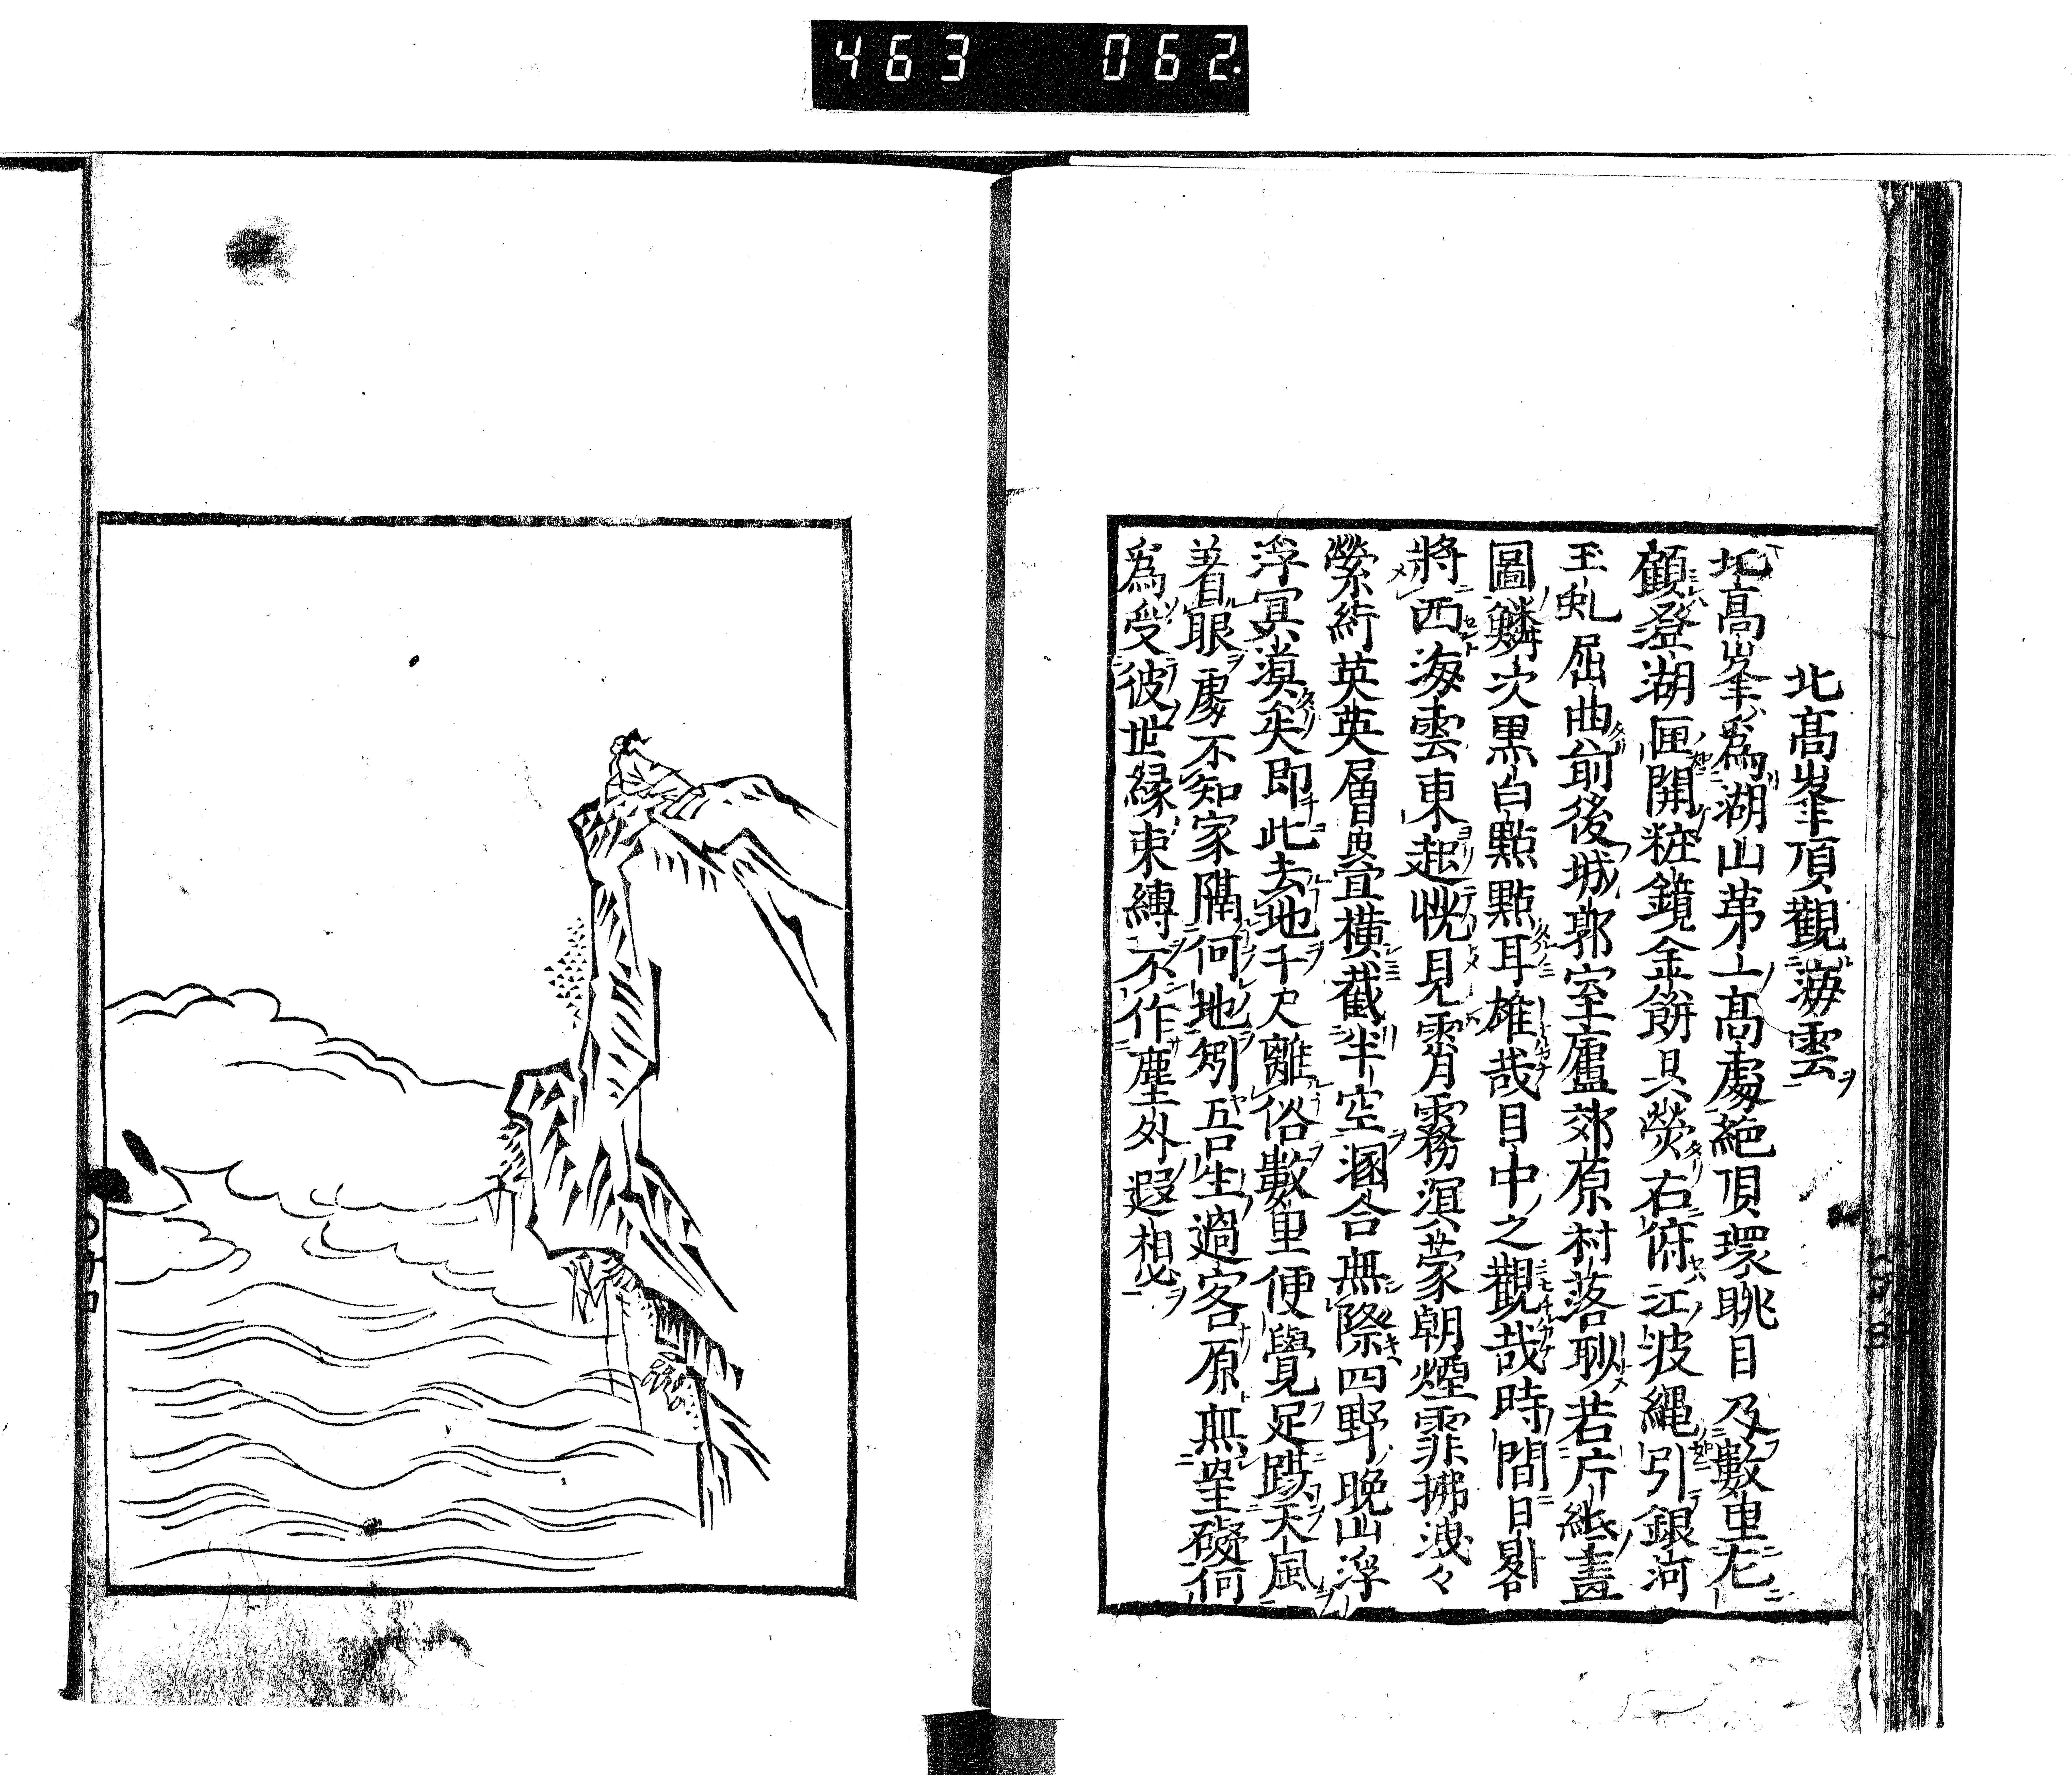 463 062
北高峯頂觀海雲
北高峯爲湖山第一高處絶頂環眺目及數里左
顧澄湖匣開粧鏡金餅只熒右俯江波繩引銀河
玉虬屈曲前後城郭室廬郊原村落聊若片紙畫
圖鱗次黒白點點耳雄哉目中之觀哉時間日晷
將西海雲東起恍見霄月霧溟蒙朝煙霏拂洩々
縈絎英英層層疊疊横截半空溷合無際四野晩山浮
浮冥漠矣即此去地千尺離俗數里便覺足躡天風
着眼處不知家隔何地矧吾生過客原無罣礙何
爲受彼世縁束縛不作塵外遐想